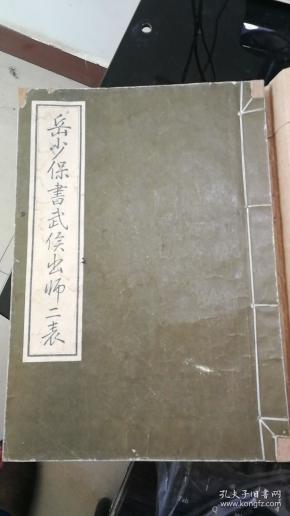 岳少保書武侯出师二表
孔夫子旧书网